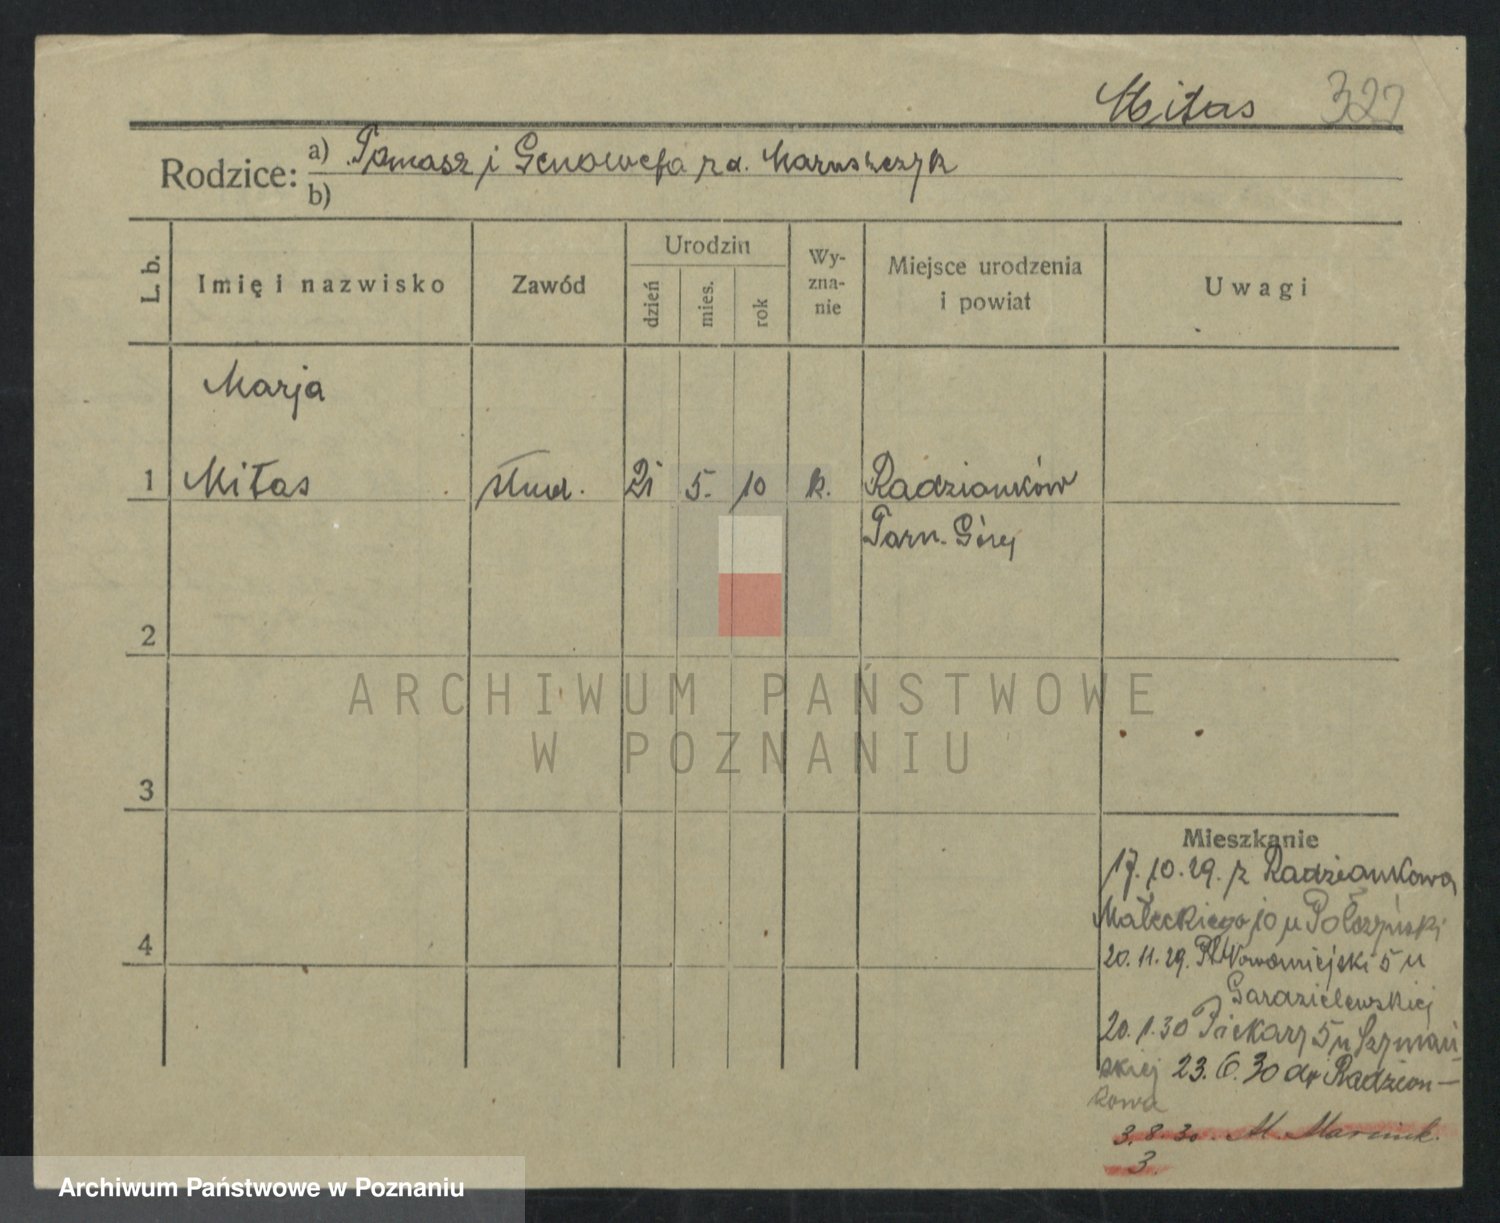 Mitas 327
Rodzice: a) Tomasz i Genowefa zd. Maruszczyk
b)
L. b. Imię i nazwisko Zawód Urodzin dzień mies. rok Wy-zna-nie Miejsce urodzenia i powiat Uwagi
Marja
1 Mitas stud. 21 5. 10 k. Radzionków
Tarn. Góry
2
ARCHIWUM PAŃSTWOWE
W POZNANIU
3
Mieszkanie
17.10.29. z Radzionkowa
Małeckiego 10 u
4
20.11.29. Pl. Nowomiejski 5 u
20.1.30 Piekary 5 u Szymań-
skiej 23.6.30 do Radzion-
kowa
3.8.30. M. Marcink.
3
Archiwum Państwowe w Poznaniu